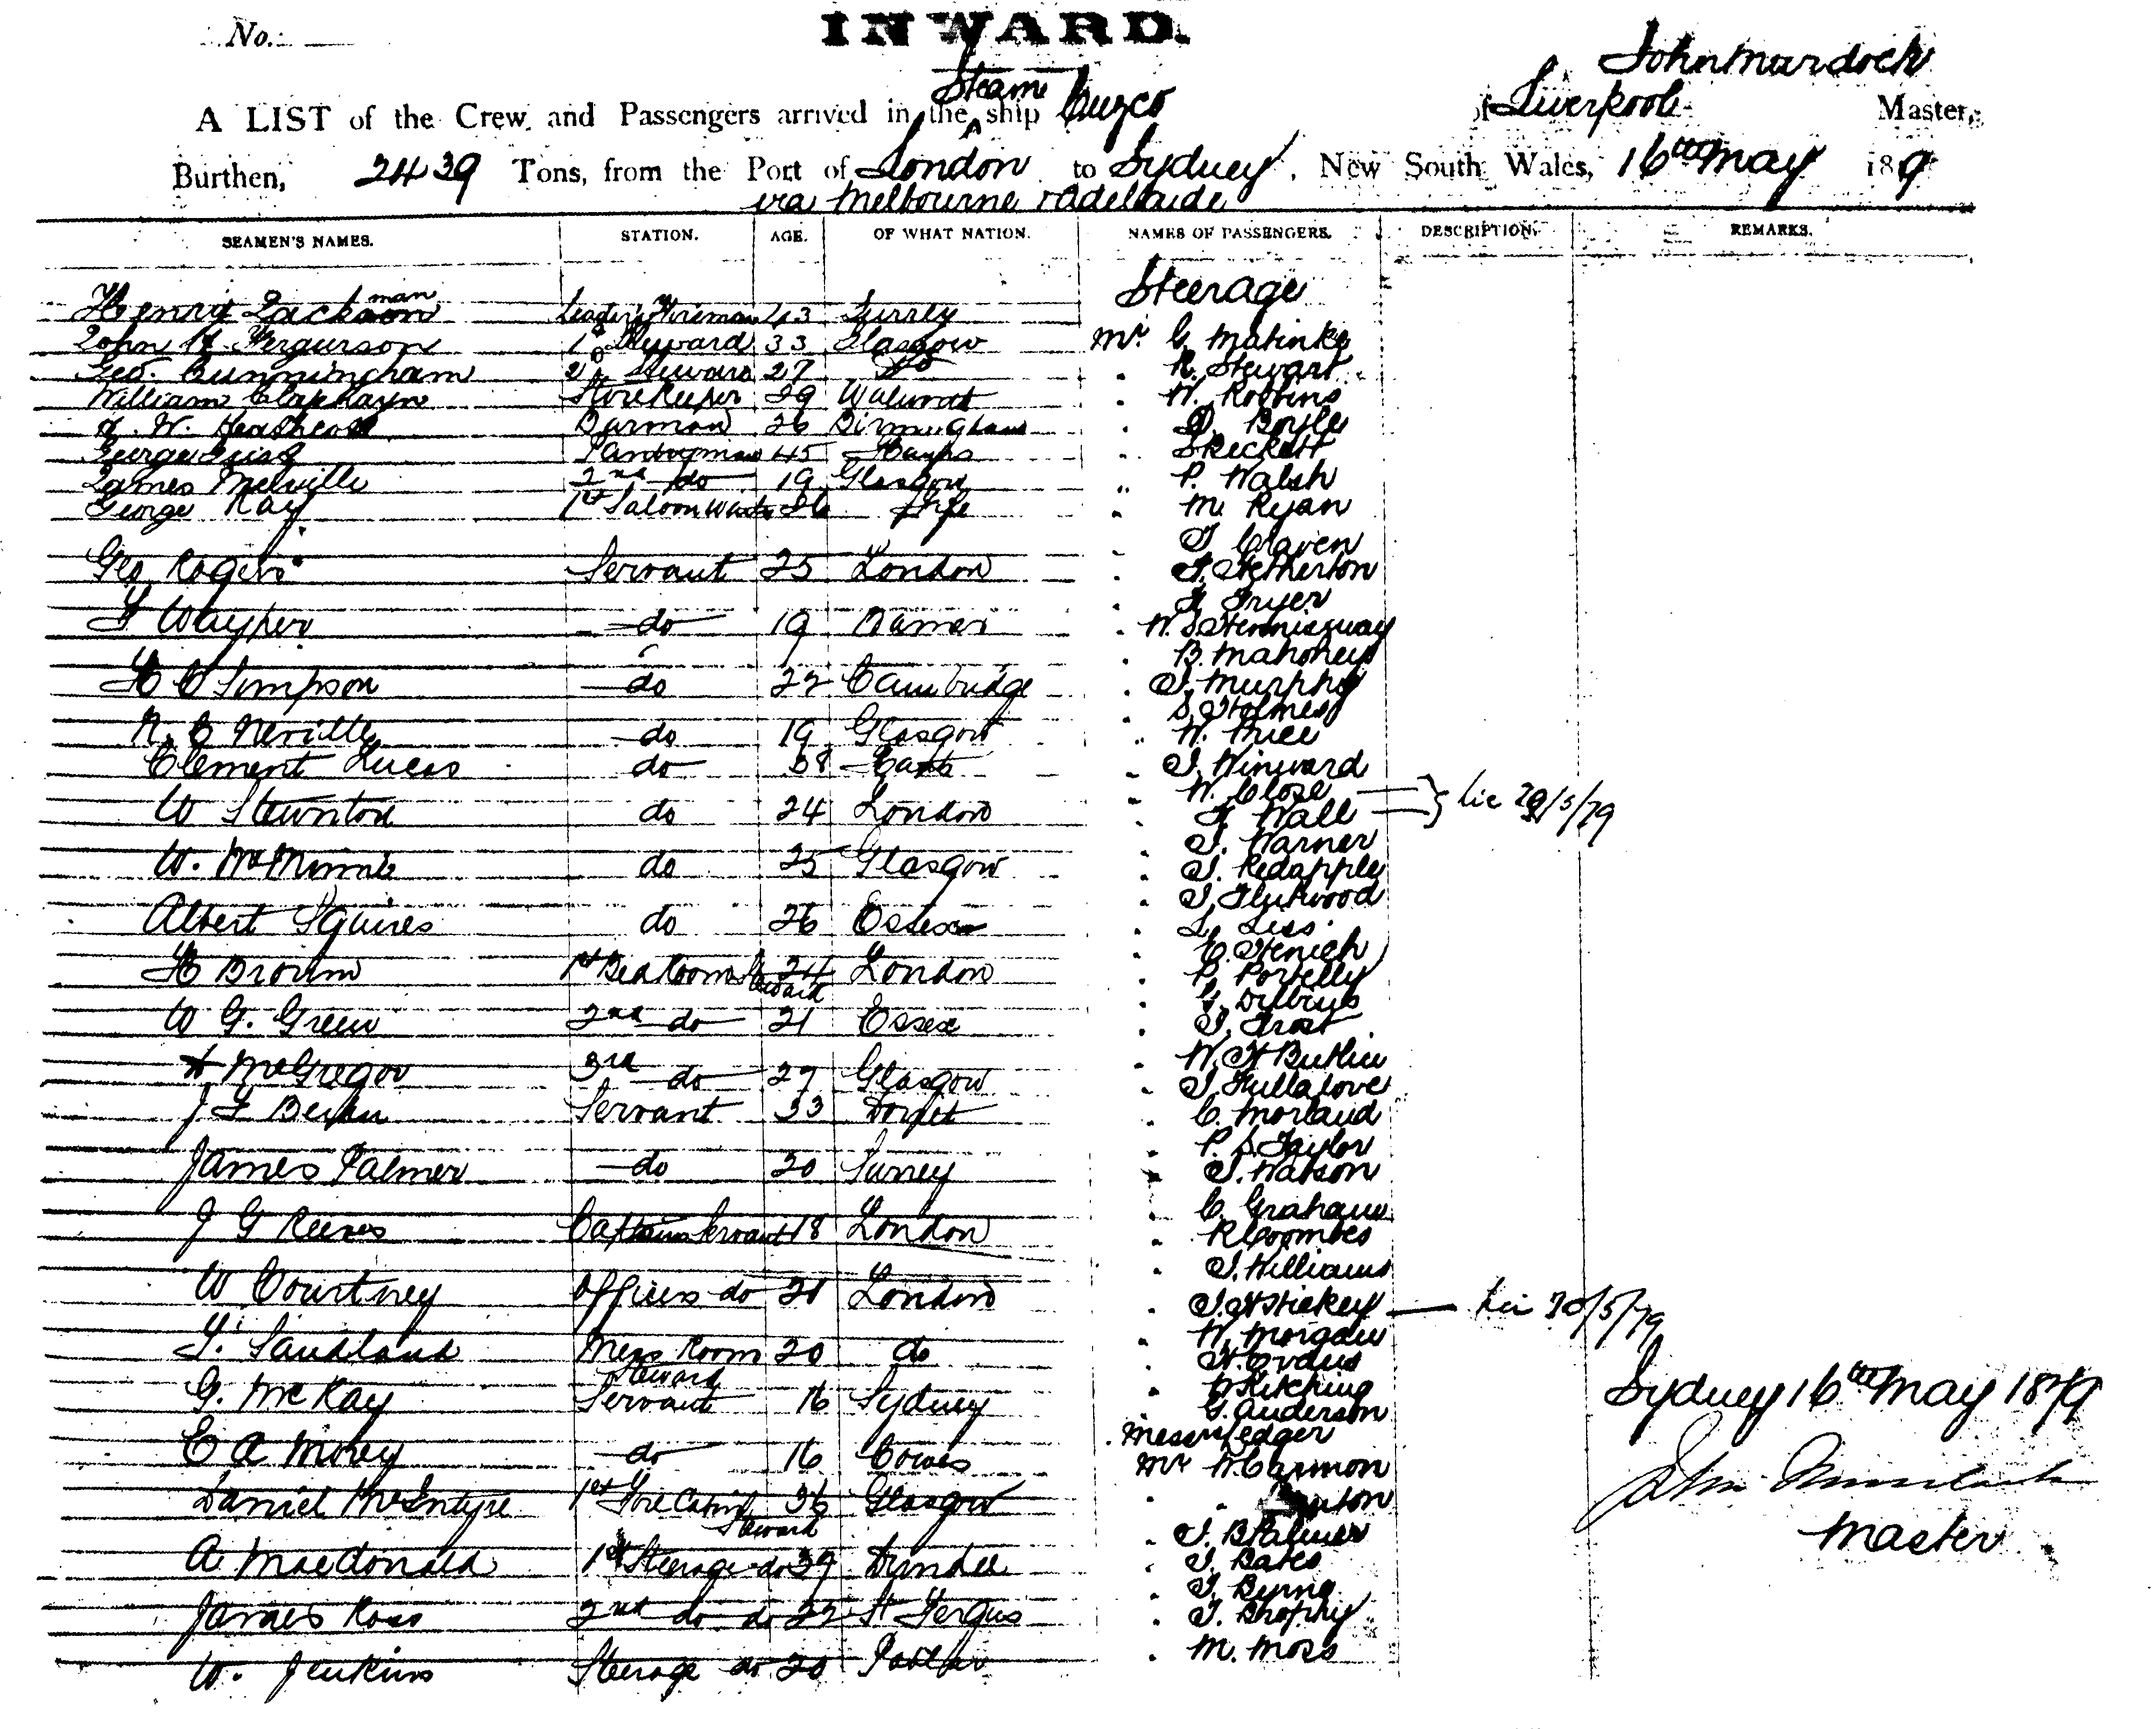 No.
INWARD.
Steam
John Murdoch
A LIST of the Crew and Passengers arrived in the ship Cuzco of Liverpool Master,
Burthen, 2439 Tons, from the Port of London to Sydney, New South Wales, 16th May 1879
via Melbourne & Adelaide
SEAMEN'S NAMES. STATION. AGE. OF WHAT NATION. NAMES OF PASSENGERS. DESCRIPTION. REMARKS.
Steerage
Henry Jackman Leading Fireman 43 Surrey
John H. Fergurson 1st Steward 33 Glasgow Mr C. Matinke
Geo. Cunningham 2 Steward 27 do " R. Stewart
William Clapham Storekeeper 29 " W. Robbins
W. Heathcote Barman 26 Birmingham " D. Boyle
George Pantryman 45 Hants " Skeckett
James Melville 2nd do 19 Glasgow " P. Walsh
George Kay 1st Saloon 26 Fife " M. Ryan
" J Craven
Geo. Rogers Servant 25 London " J. Hetherton
" H Fryer
F Whyper do 19 Barnes " W. S. Hemmingway
" B. Mahoney
H C Simpson do 22 Cambridge " J. Murphy
" S. Holmes
R. C Neville do 19 Glasgow " W.
Clement Lucas do 38 " J. Winward
" W. Close
W Staunton do 24 London " H. Wall } Lic 29/5/79
" J. Warner
W. McMinnie do 25 Glasgow " J. Redapple
" J. Fleetwood
Albert Squires do 26 Essex " L. Liss
" C. Henich
H Brown 1st Bed Room Steward 24 London " P. Portelly
"
W G. Green 2nd do 21 Essex " J. Frost
" W. H Butler
McGregor 3rd do 27 Glasgow " J. Fullalove
J F Servant 33 Dorset " C. Morland
" P. S. Taylor
James Palmer do 20 Surrey " J. Watson
" C. Graham
J G Reeves Captains Servant 18 London " R Coombes
" J. Williams
W Courtney Officers do 21 London " J. H Hickey — Lic 30/5/79
" W. Morgan
T. Sandland Mess Room Steward 20 do " H. Evans
" W Kitching
G. McKay Servant 16 Sydney " G. Anderson
Sydney 16th May 1879
Messrs Ledger
C A Morey do 16 Cowes Mr W. Cannon
John Murdoch
Daniel McIntyre 1st Fore Cabin Steward 36 Glasgow "
Master
" J. B Palmer
A. Macdonald 1st Steerage do 39 Dundee " J. Bates
" J. Byrne
James Ross 2nd do do 22 St Fergus " J. Brophy
" M. Moss
W. Jenkins Steerage do 20 Poplar